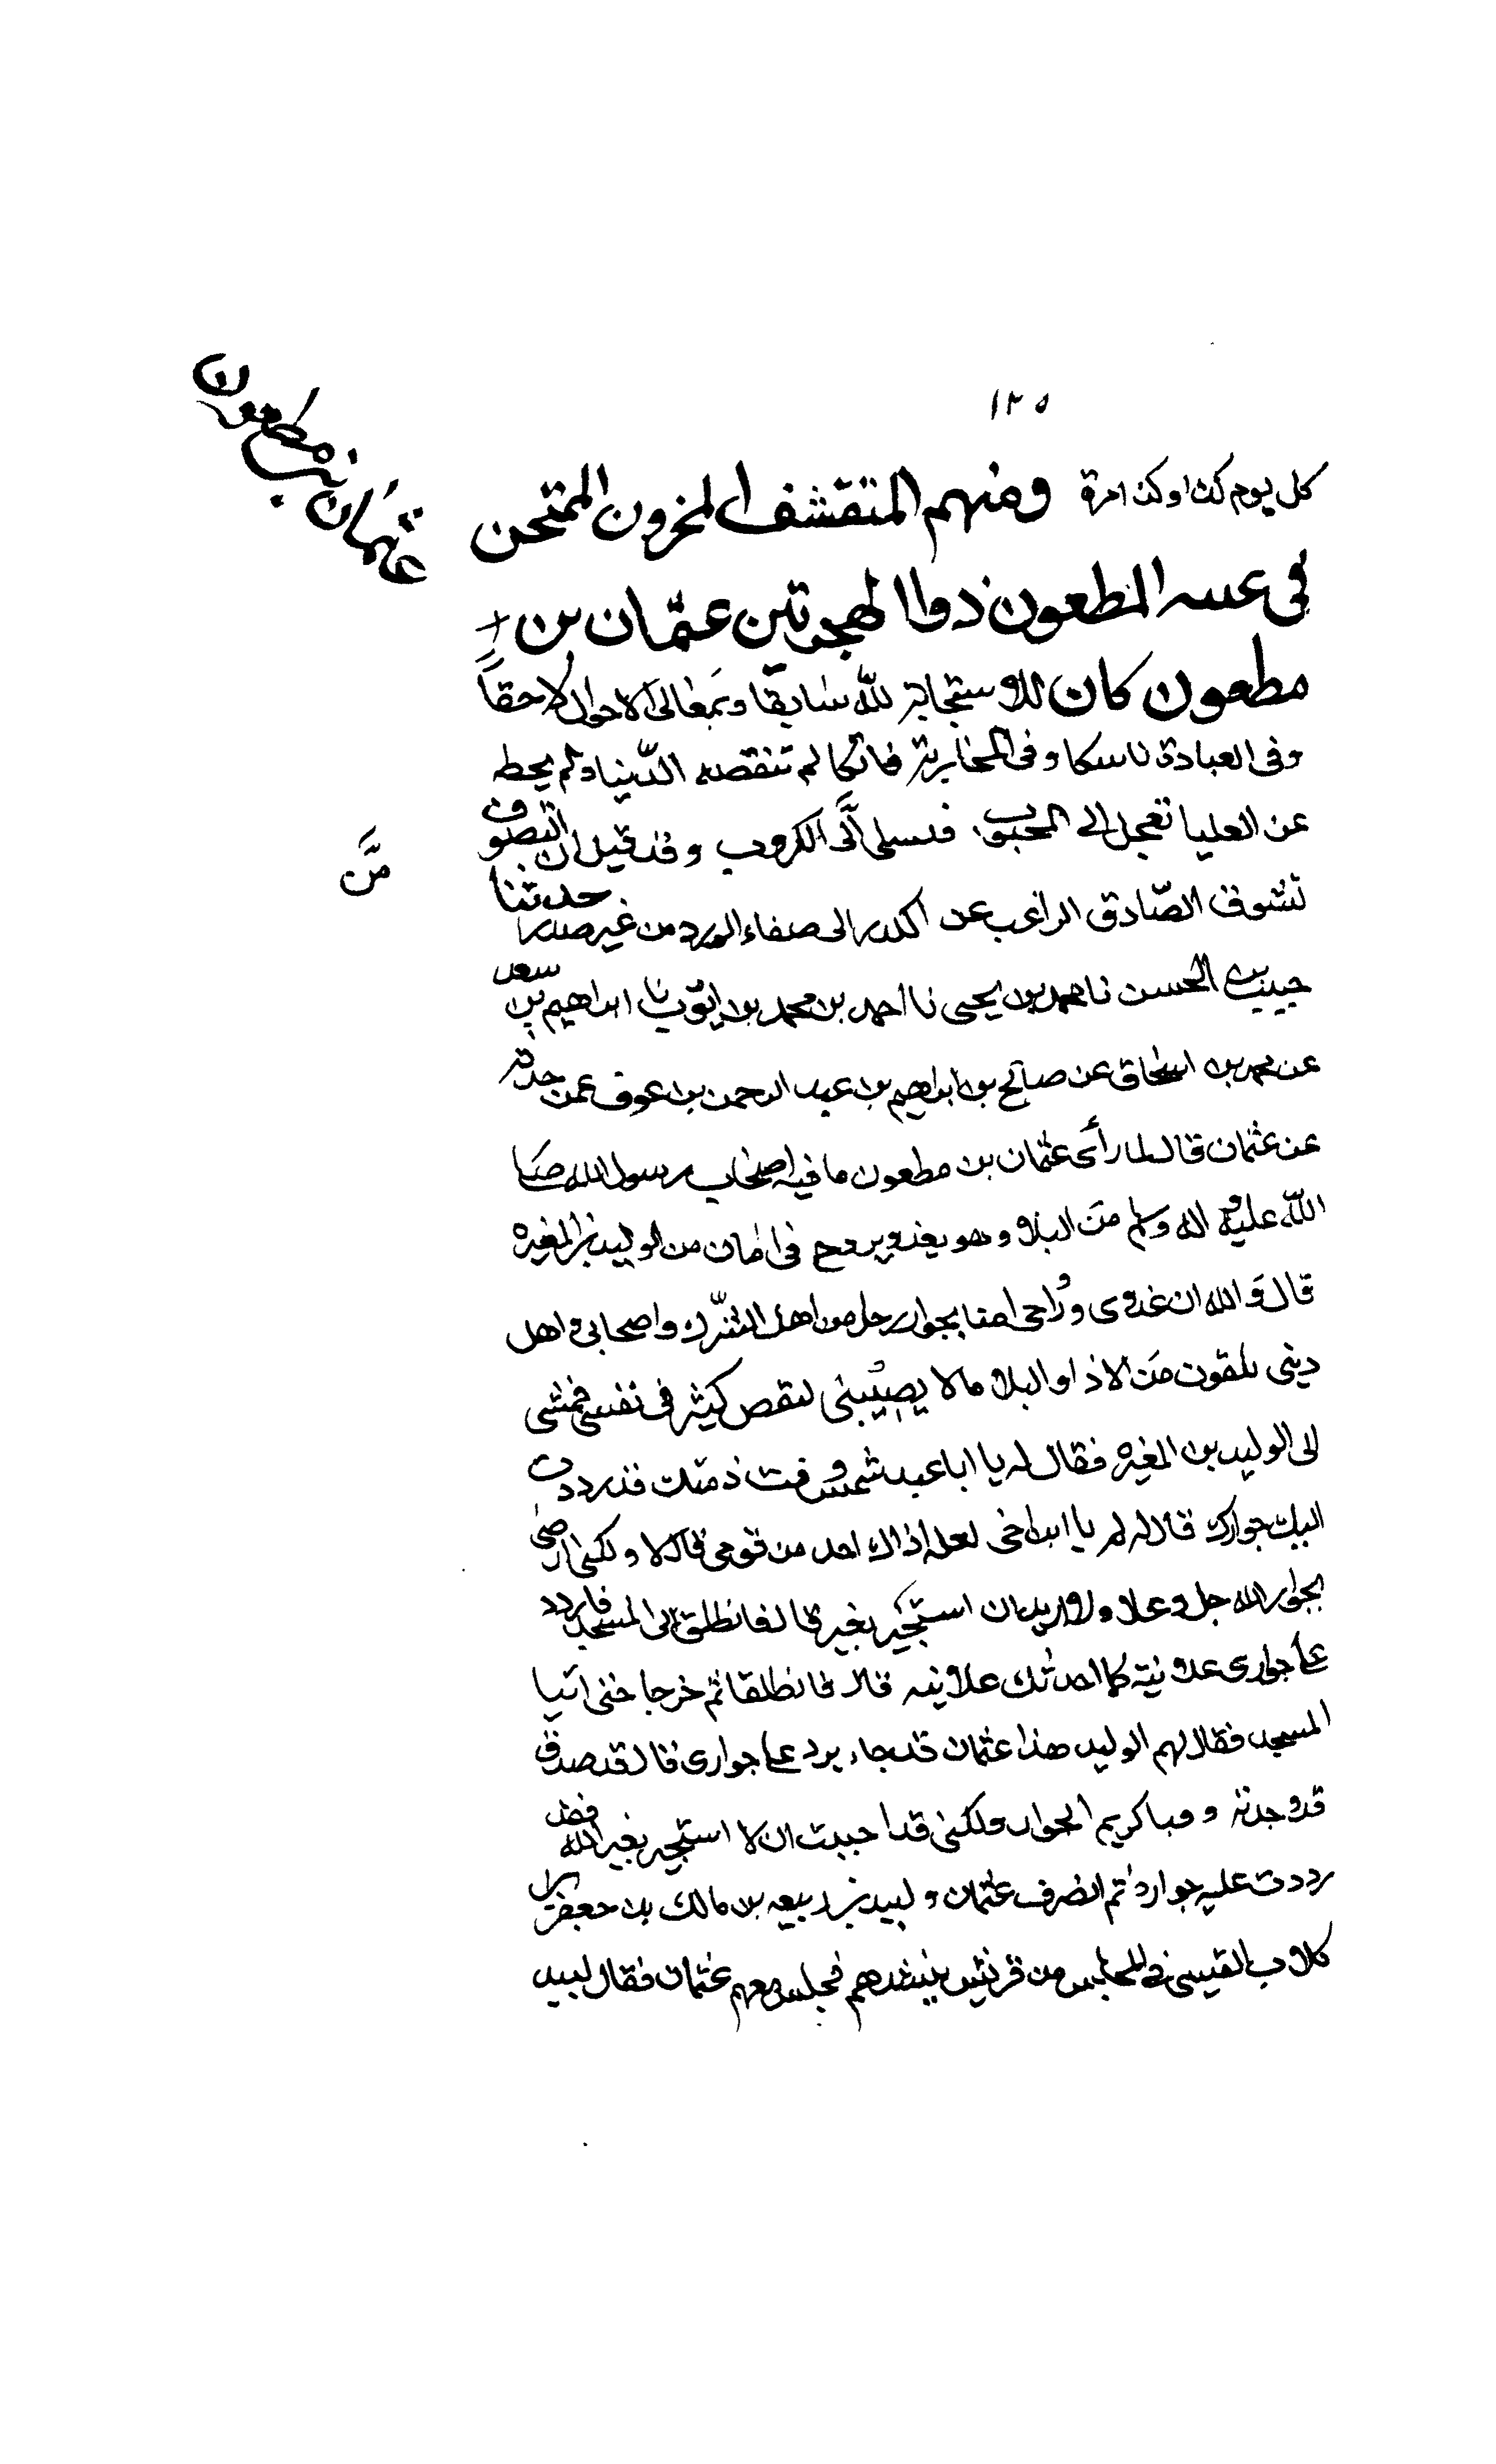 ١٢٥
عثمان بن مظعون
كل يوم كذا وكذا مرة ومنهم المتقشف المخزون الممتحن
فى عينه المطعون ذو الهجرتين عثمان بن
مطعون كان للاستجابة لله سابقا وبمعالى الاحوال لاحقاً
وفى العبادة ناسكا وفى المحاربة فاتكا لم تنقصه الدّنيا ولم يحطه
عن العليا تعجل الى المحبوب فتسلى عن الكروب وقد قيل ان التصوف
منّ
تشوف الصّادق الراغب عن الكدر الى صفاء الورد من غير صدر حدثنا
حبيب بن الحسن نا محمد بن يحيى نا احمد بن محمد بن ايّوب نا ابراهيم بن سعد
عن محمد بن اسحاق عن صالح بن ابراهيم بن عبد الرحمن بن عوف عمن حدثه
عن عثمان قال لما رأى عثمان بن مطعون ما فيه اصحاب رسول الله صلى
اللّه عليه واله وسلم من البلاء وهو يغدو ويروح فى امان من الوليد بن المغيره
قال والله ان غدوى ورواحى امنا بجوار رجل من اهل الشّرك واصحابى واهل
دينى يلقون من الاذا والبلاء ما لا يصيبنى لنقص كثير فى نفسى فمشى
الى الوليد بن المغيره فقال له يا ابا عبد شمس وفت ذمتك قد رددت
اليك جوارك قال له لم يا ابن اخى لعله اذاك احد من قومى قال لا ولكنى ارضى
بجوار الله جل وعلا ولا اريد ان استجير بغيره قال فانطلق الى المسجد فاردد
على جوارى علانية كما اجرتك علانيه قال فانطلقا ثم خرجا حتى اتيا
المسجد فقال لهم الوليد هذا عثمان قد جاء يرد على جوارى قال قد صدق
قد وجدته وفيا كريم الجوار ولكنى قد احببت ان لا استجير بغير الله فقد
رددت عليه جواره ثم انصرف عثمان ولبيد بن ربيعه بن مالك بن جعفر بن
كلاب القيسى فى المجلس من قريش ينشدهم فجلس معهم عثمان فقال لبيد